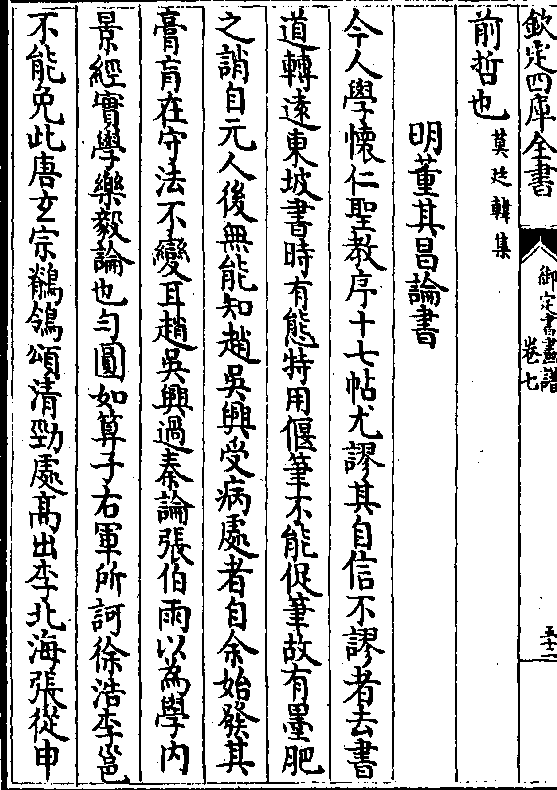 欽定四庫全書
御定書畫譜
卷七
五十二
前哲也莫廷韓集
明董其昌論書
今人學懷仁聖教序十七帖尤謬其自信不謬者去書
道轉遠東坡書時有態特用偃筆不能促筆故有墨肥
之誚自元人後無能知趙吳興受病處者自余始發其
膏肓在守法不變耳趙吳興過秦論張伯雨以為學内
景經實學樂毅論也勻圓如算子右軍所訶徐浩李邕
不能免此唐玄宗鶺鴒頌清勁處髙出李北海張從申